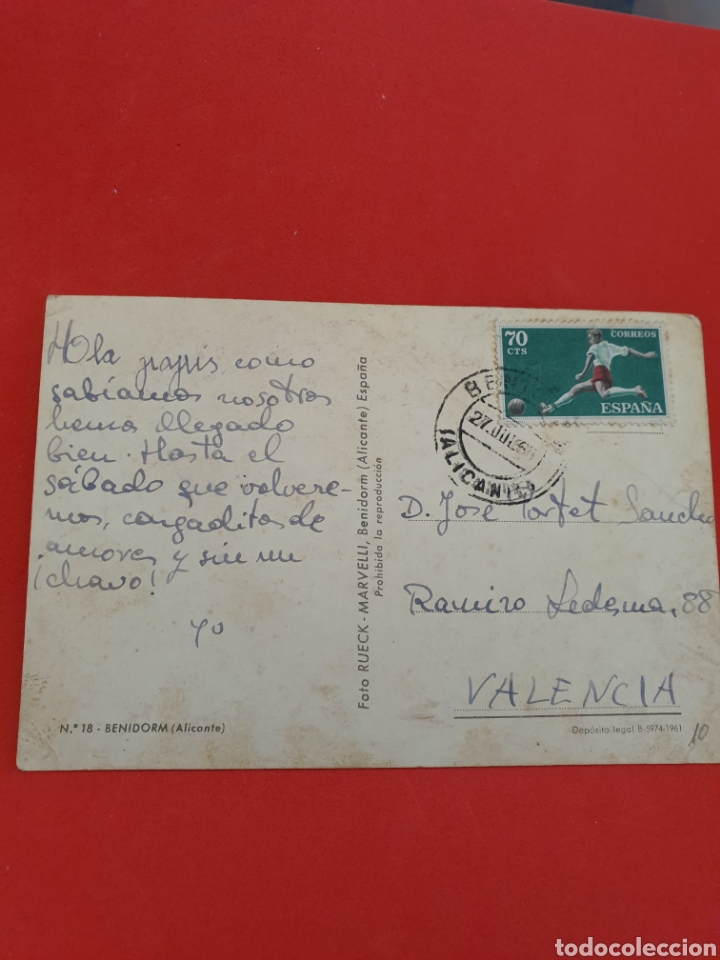 Hola papis como
sabíamos nosotros
hemos llegado
bien. Hasta el
sábado que volvere-
mos, cargaditos de
amores y sin un
¡chavo!
Yo
N.º 18 - BENIDORM (Alicante)
Foto RUECK - MARVELLI, Benidorm (Alicante) España
Prohibida la reproducción
70
CTS
CORREOS
ESPAÑA
27.JUL
(ALICANTE)
D. José Tortet Sancho
Ramiro Ledesma, 88
VALENCIA
Depósito legal B-5974-1961
10
todocoleccion